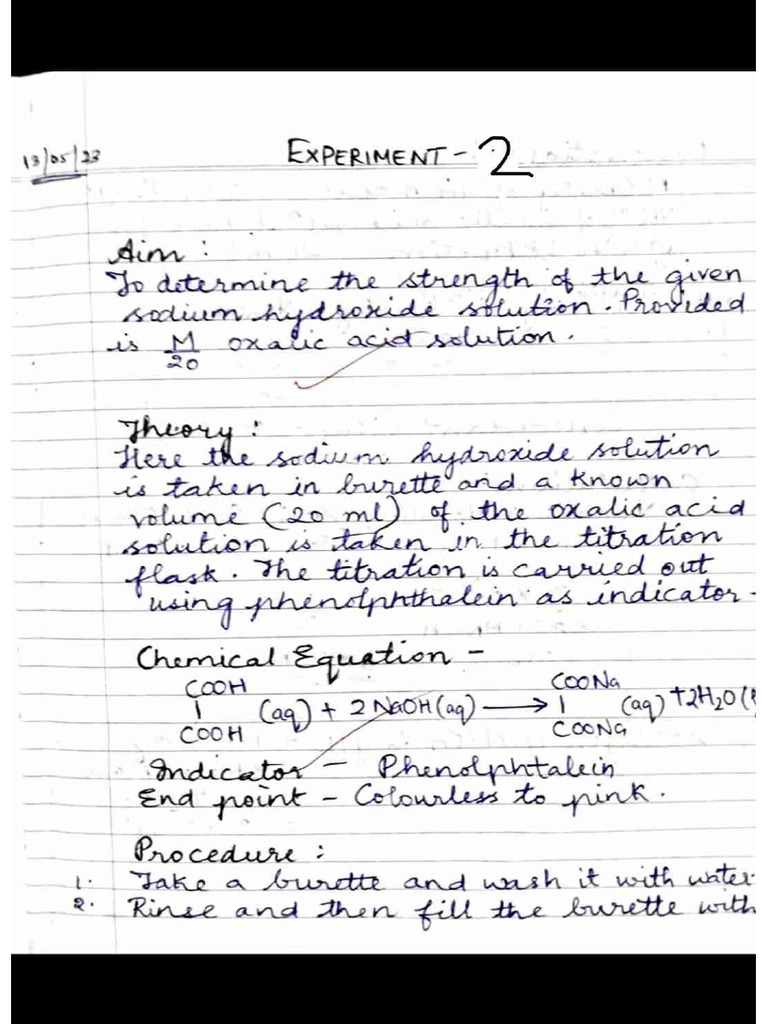 13/05/23
EXPERIMENT - 2
Aim :
To determine the strength of the given
sodium hydroxide solution. Provided
is M/20 oxalic acid solution.
Theory :
Here the sodium hydroxide solution
is taken in burette and a known
volume (20 ml) of the oxalic acid
solution is taken in the titration
flask. The titration is carried out
using phenolphthalein as indicator -
Chemical Equation -
COOH COONa
| (aq) + 2 NaOH (aq) → | (aq) + 2H₂O (
COOH COONa
Indicator - Phenolphtalein
End point - Colourless to pink.
Procedure :
1. Take a burette and wash it with water.
2. Rinse and then fill the burette with